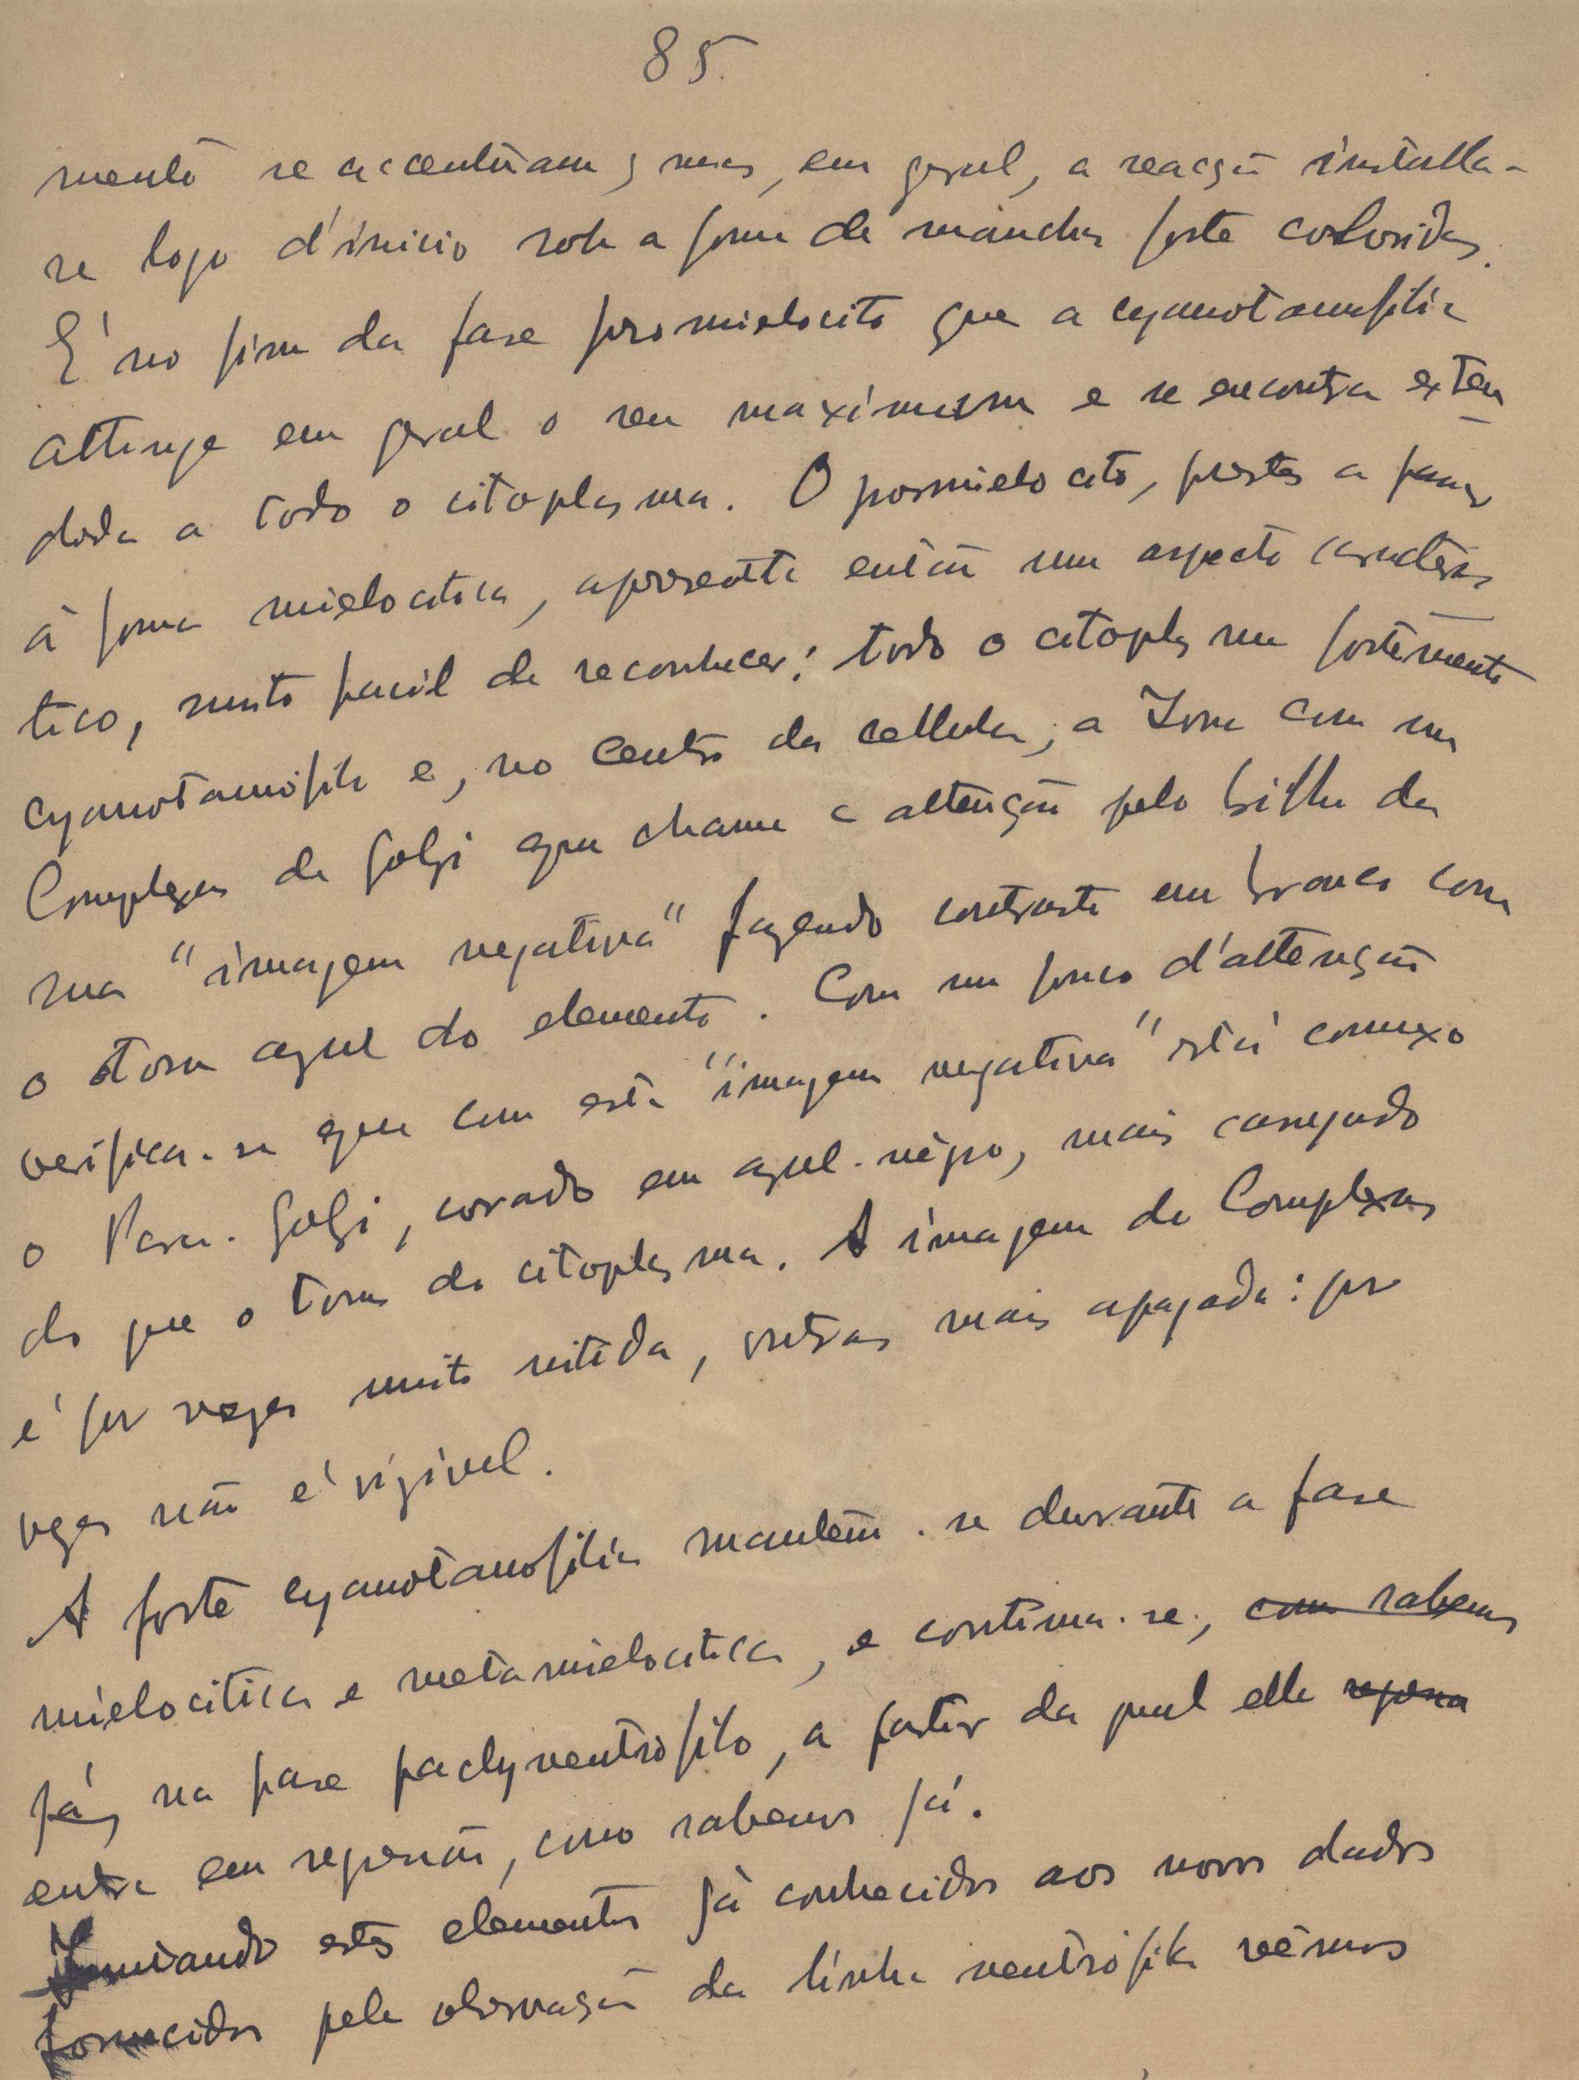 85
mento se accentuam; mas, em geral, a reacção installa-
se logo d'inicio sob a forma de manchas forte coloridas.
É no fim da fase promielocito que a cyanotanofilia
attinge em geral o seu maximum e se encontra exten
dida a todo o citoplasma. O promielocito, prestes a passar
á forma mielocitica, apresenta então um aspecto caracteris
tico, muito facil de reconhecer: todo o citoplasma fortemente
cyanotanofilo e, no centro da cellula, a Zona com um
Complexus de Golgi que chama a attenção pelo brilho da
sua "imagem negativa" fazendo contraste em branco com
o tom azul do elemento. Com um pouco d'attenção
verifica-se que com esta "imagem negativa" está connexo
o Para-Golgi, corado em azul-négro, mais carregado
do que o tom do citoplasma. A imagem do Complexus
é por vezes muito nitida, outras mais apagada: por
vezes não é vizivel.
A forte cyanotanofilia mantem-se durante a fase
mielocitica e metamielocitica, e continua-se, com sabemos
já, na fase pachyneutrofilo, a partir da qual ella
entra em regressão, como sabemos já.
estes elementos já conhecidos aos novos dados
fornecidos pela observação da linha neutrofila vêmos